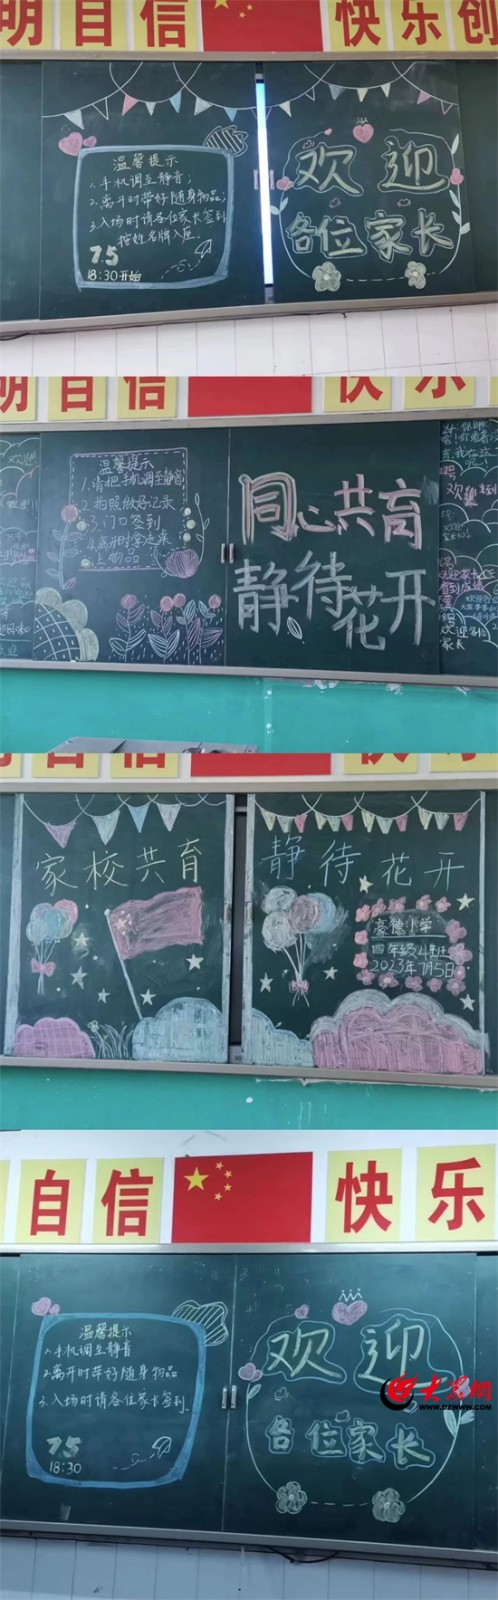 明自信 快乐创
温馨提示
1.手机调至静音；
2.离开时带好随身物品；
3.入场时请各位家长签到
按姓名牌入座。
7.5
18:30开始
欢迎
各位家长
明自信 快乐
温馨提示
1.请把手机调至静音
2.拍照做好记录
3.门口签到
4.离开时拿走桌
上物品
同心共育
静待花开
欢迎各位
家长
明自信 快乐
家校共育
静待花开
豪德小学
四年级4班
2023年7月5日
自信 快乐
温馨提示
1.手机调至静音
2.离开时带好随身物品
3.入场时请各位家长签到.
7.5
18:30
欢迎
各位家长
大众网
WWW.DZWWW.COM